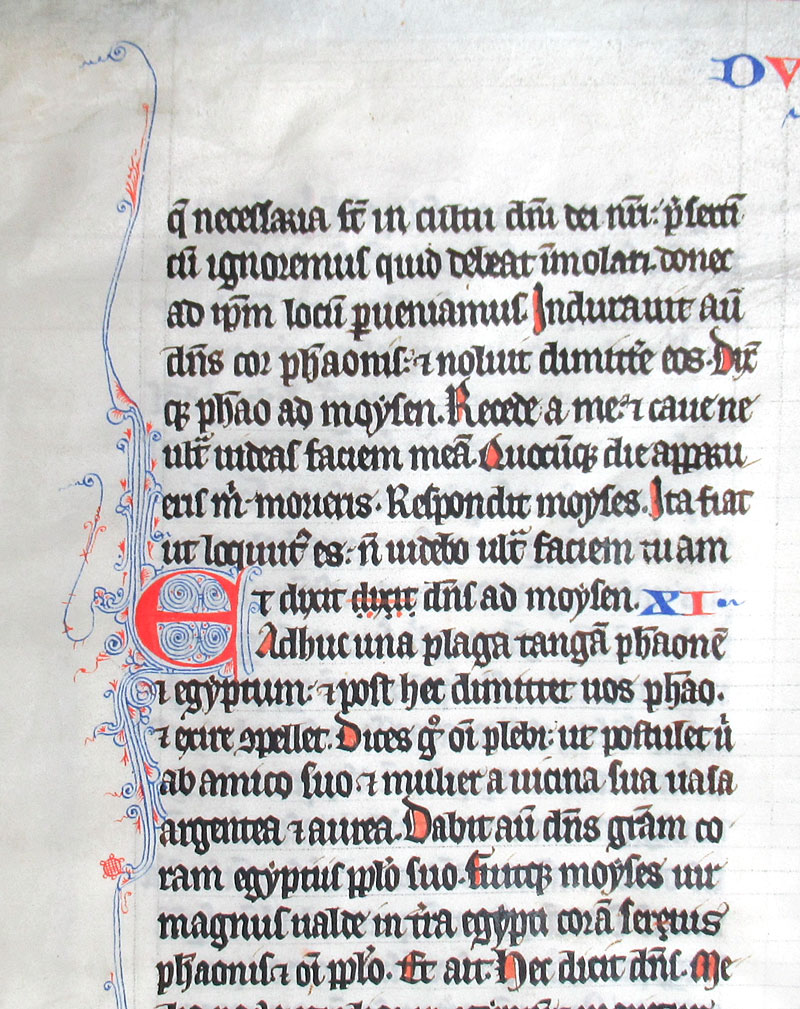 DV
q̄ necessaria st̄ in cultū dn̄i dei nr̄i: p̄sertī
cū ignoremus quid debeat īmolari. donec
ad ip̄m locū ꝑueniamus. Indurauit aū
dn̄s cor ph̄aonis: ⁊ noluit dimitt̄e eos. Dix̄
cꝫ ph̄ao ad moysen. Recede a me: ⁊ caue ne
ult̄ uideas faciem meā. Quocūqꝫ die apparu
eris m̄. morieris. Respondit moyses. Ita fiat
ut locutꝰ es: n̄ uidebo ult̄ faciem tuam
Et dixit dixit dn̄s ad moysen. XI
Adhuc una plaga tangā ph̄aonē
⁊ egyptum: ⁊ post hec dimittet uos ph̄ao.
⁊ exire ꝯpellet. Dices gͦ oī plebi: ut postulet ū
ab amico suo ⁊ mulier a uicina sua uasa
argentea ⁊ aurea. Dabit aū dn̄s grām co
ram egyptiis pplō suo. Fuitqꝫ moyses uir
magnus ualde in tr̄a egypti corā seruis
ph̄aonis ⁊ oī pplō. Et ait. Hec dicit dn̄s. Me